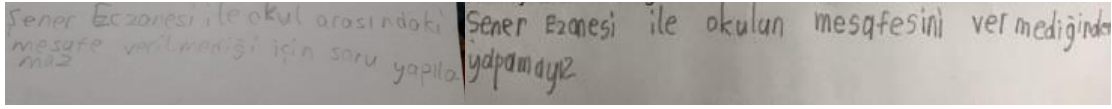 Şener Eczanesi ile okul arasındaki
mesafe verilmediği için soru yapıla
maz
Şener Ezanesi ile okulun mesafesini vermediğinden
yapamayız